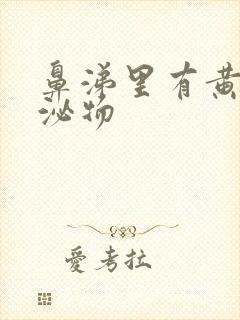 鼻涕里有黄
泌物
愛考拉